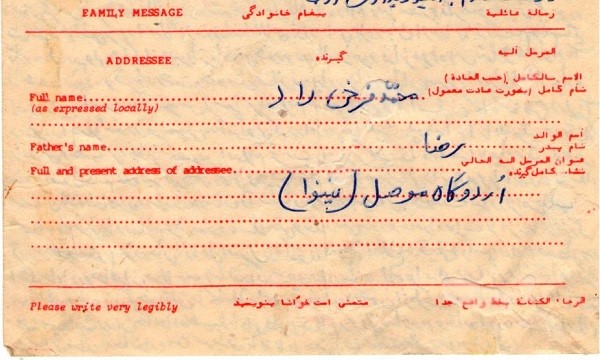 FAMILY MESSAGE پیغام خانوادگی رسالة عائلية
ADDRESSEE گیرنده المرسل الیه
الاسم بالکامل (حسب العادة)
Full name محمد فرخی راد نام کامل (بصورت عادت معمول)
(as expressed locally)
اسم الوالد
Father's name رضا نام پدر
عنوان المرسل الیه الحالي
Full and present address of addressee نشانی کامل گیرنده
اردوگاه موصل (نینوا)
Please write very legibly متمنی است خوانا بنویسید الرجاء الکتابة بخط واضح جدا